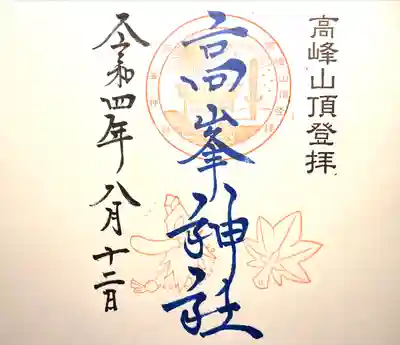 高峰山頂登拝
高峯神社
令和四年八月十二日